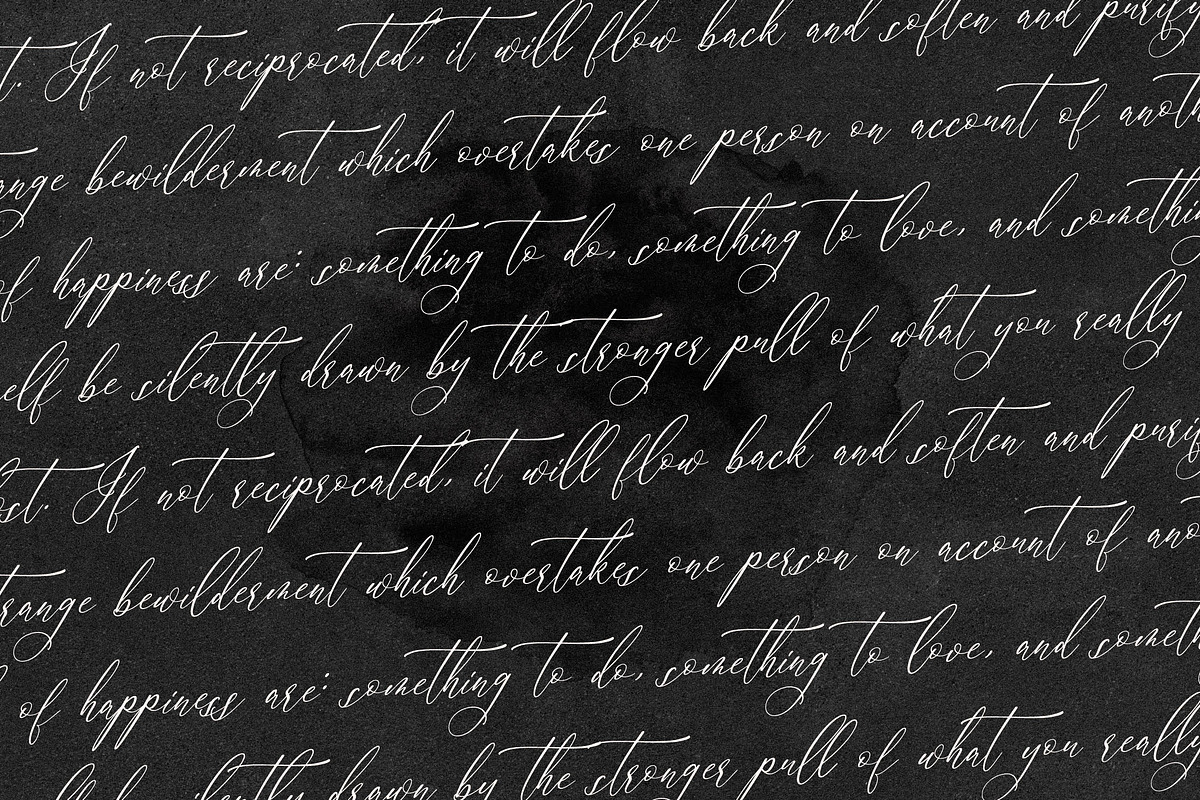 t. If not reciprocated, it will flow back and soften and purify
ange bewilderment which overtakes one person on account of anoth
of happiness are: something to do, something to love, and somethi
elf be silently drawn by the stronger pull of what you really
ost. If not reciprocated, it will flow back and soften and purif
range bewilderment which overtakes one person on account of ano
of happiness are: something to do, something to love, and someth
silently drawn by the stronger pull of what you really